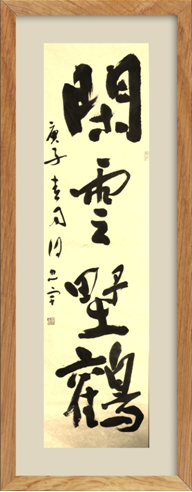 閑雲野鶴
庚子春月